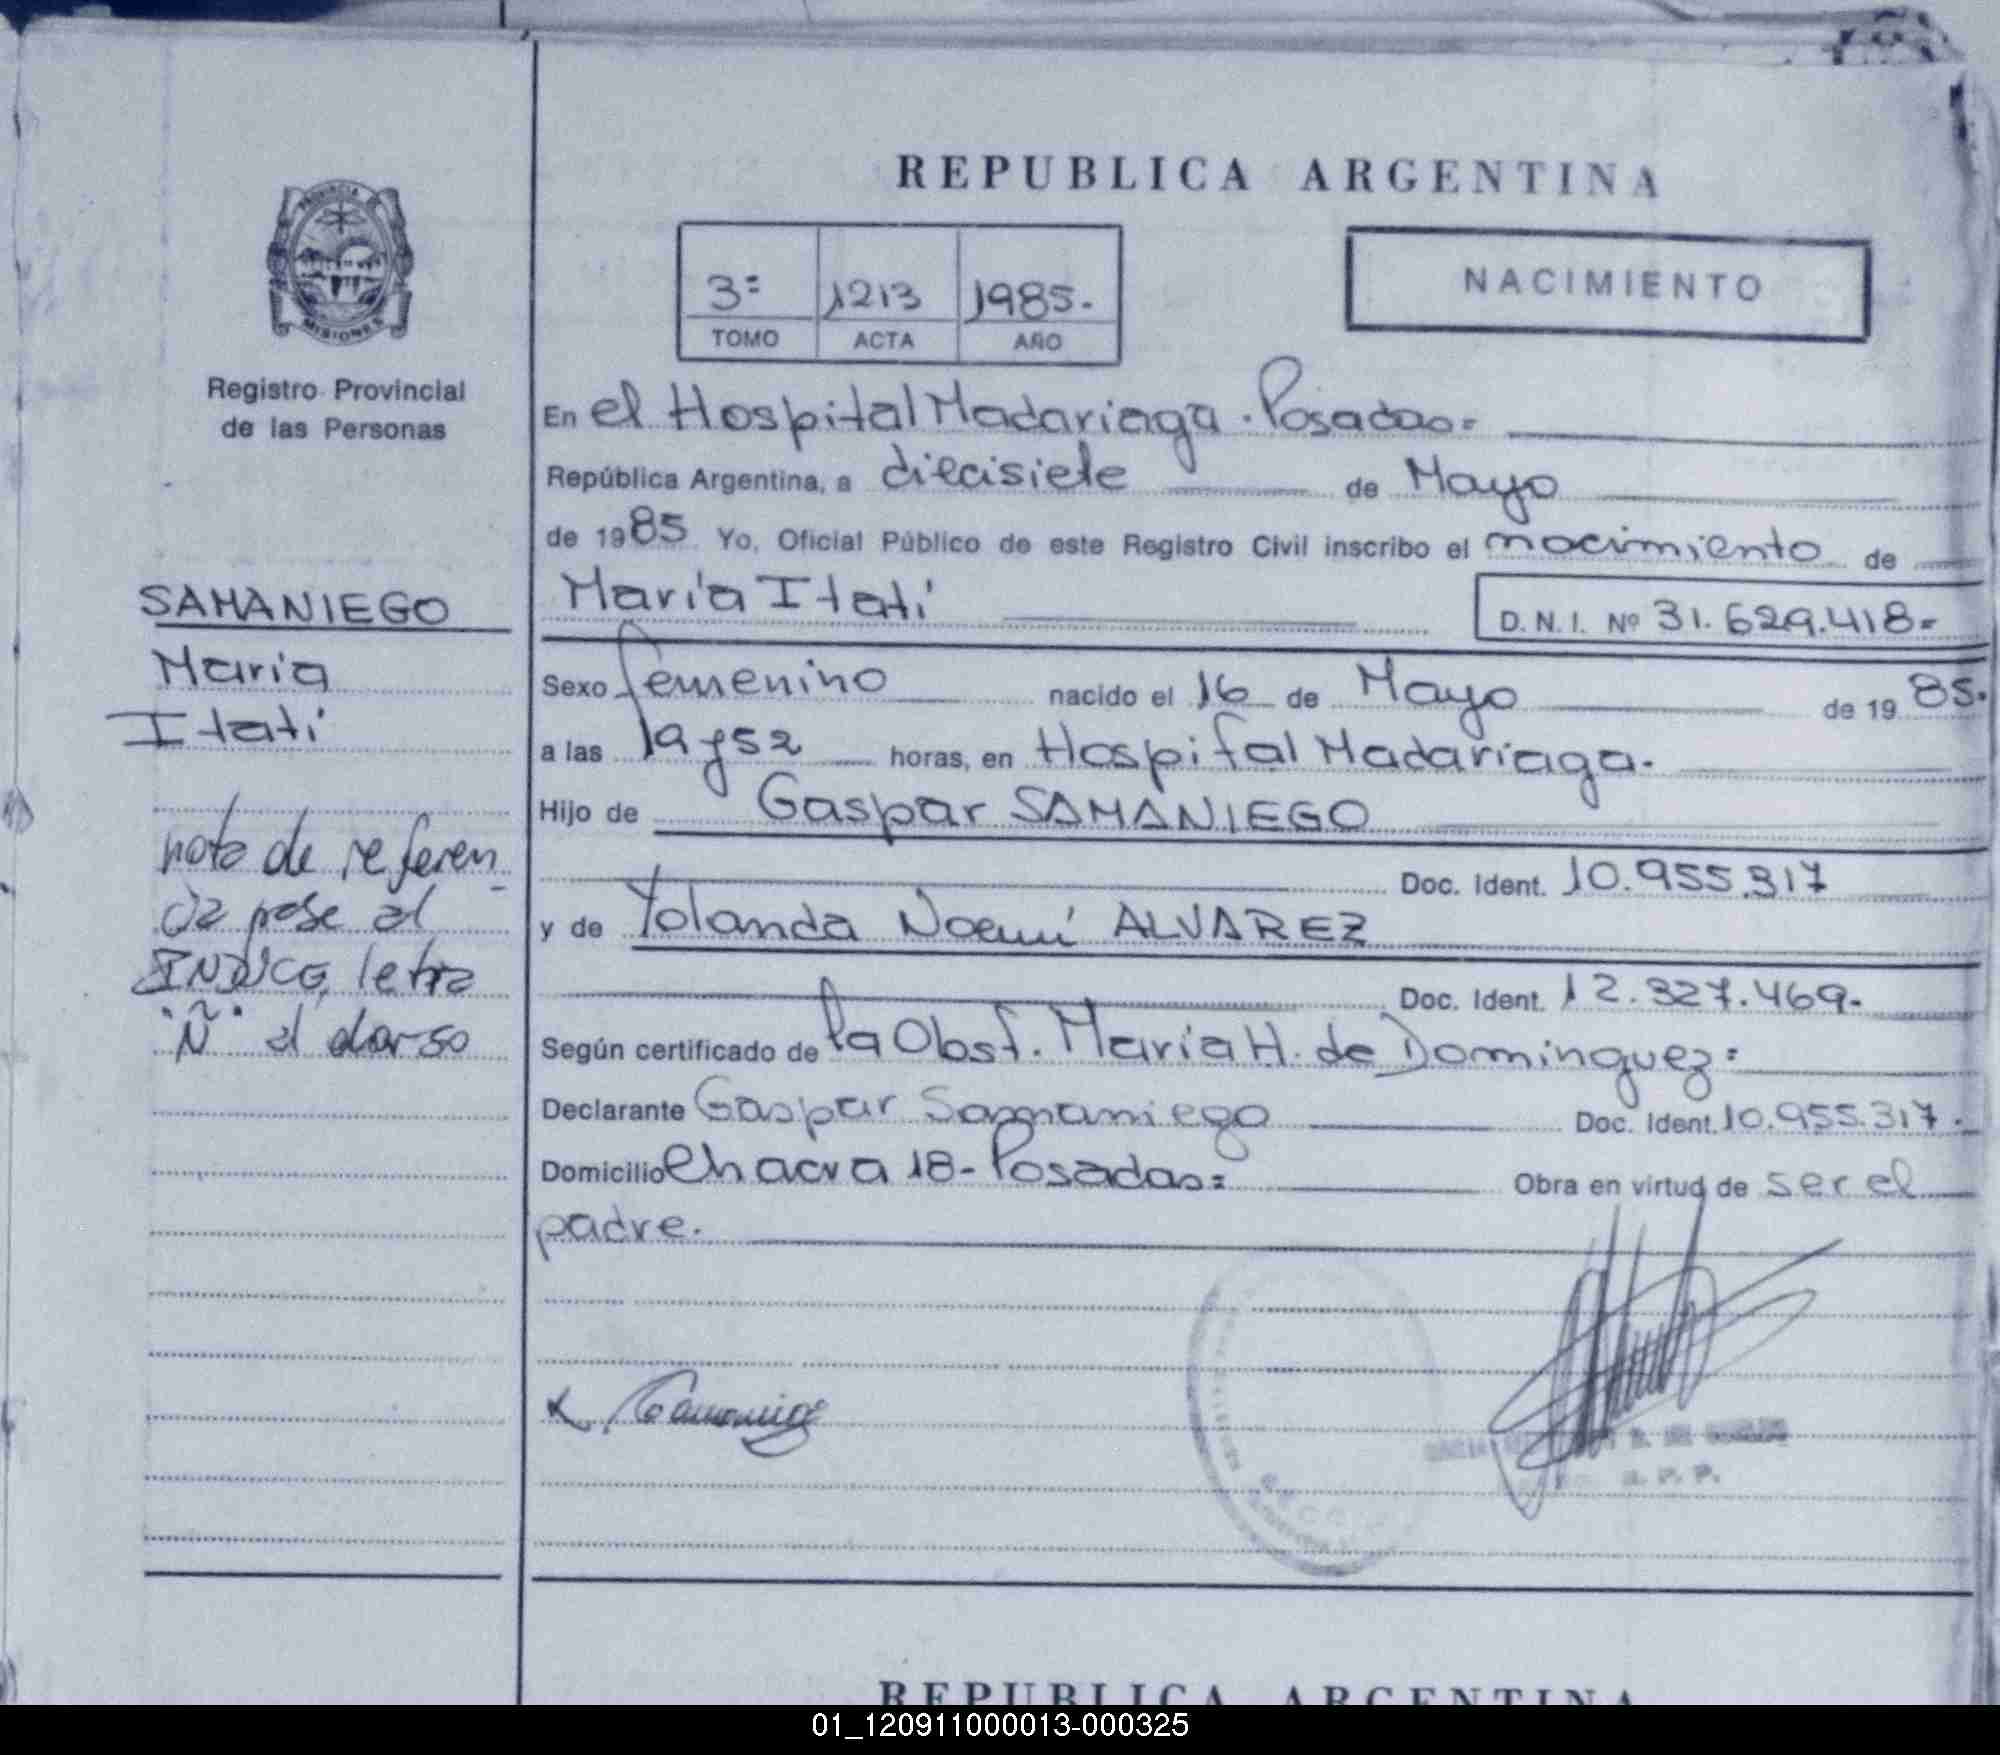 REPUBLICA ARGENTINA
PROVINCIA DE
MISIONES
Registro Provincial
de las Personas
3º 1213 1985.
TOMO ACTA AÑO
NACIMIENTO
En el Hospital Madariaga. Posadas=
República Argentina, a diecisiete de Mayo
de 1985 Yo, Oficial Público de este Registro Civil inscribo el nacimiento de
María Itatí D.N.I. Nº 31.629.418-
Sexo femenino nacido el 16 de Mayo de 1985.
a las 19 y 52 horas, en Hospital Madariaga.
Hijo de Gaspar SAMANIEGO
Doc. Ident. 10.955.317
y de Yolanda Noemí ALVAREZ
Doc. Ident. 12.327.469-
Según certificado de la Obst. María H. de Dominguez=
Declarante Gaspar Samaniego Doc. Ident. 10.955.317.
Domicilio Chacra 18- Posadas= Obra en virtud de ser el
padre.
SAMANIEGO
María
Itatí
nota de referen
cia pase al
INDICE, letra
"Ñ" al dorso
REPUBLICA ARGENTINA
01_120911000013-000325